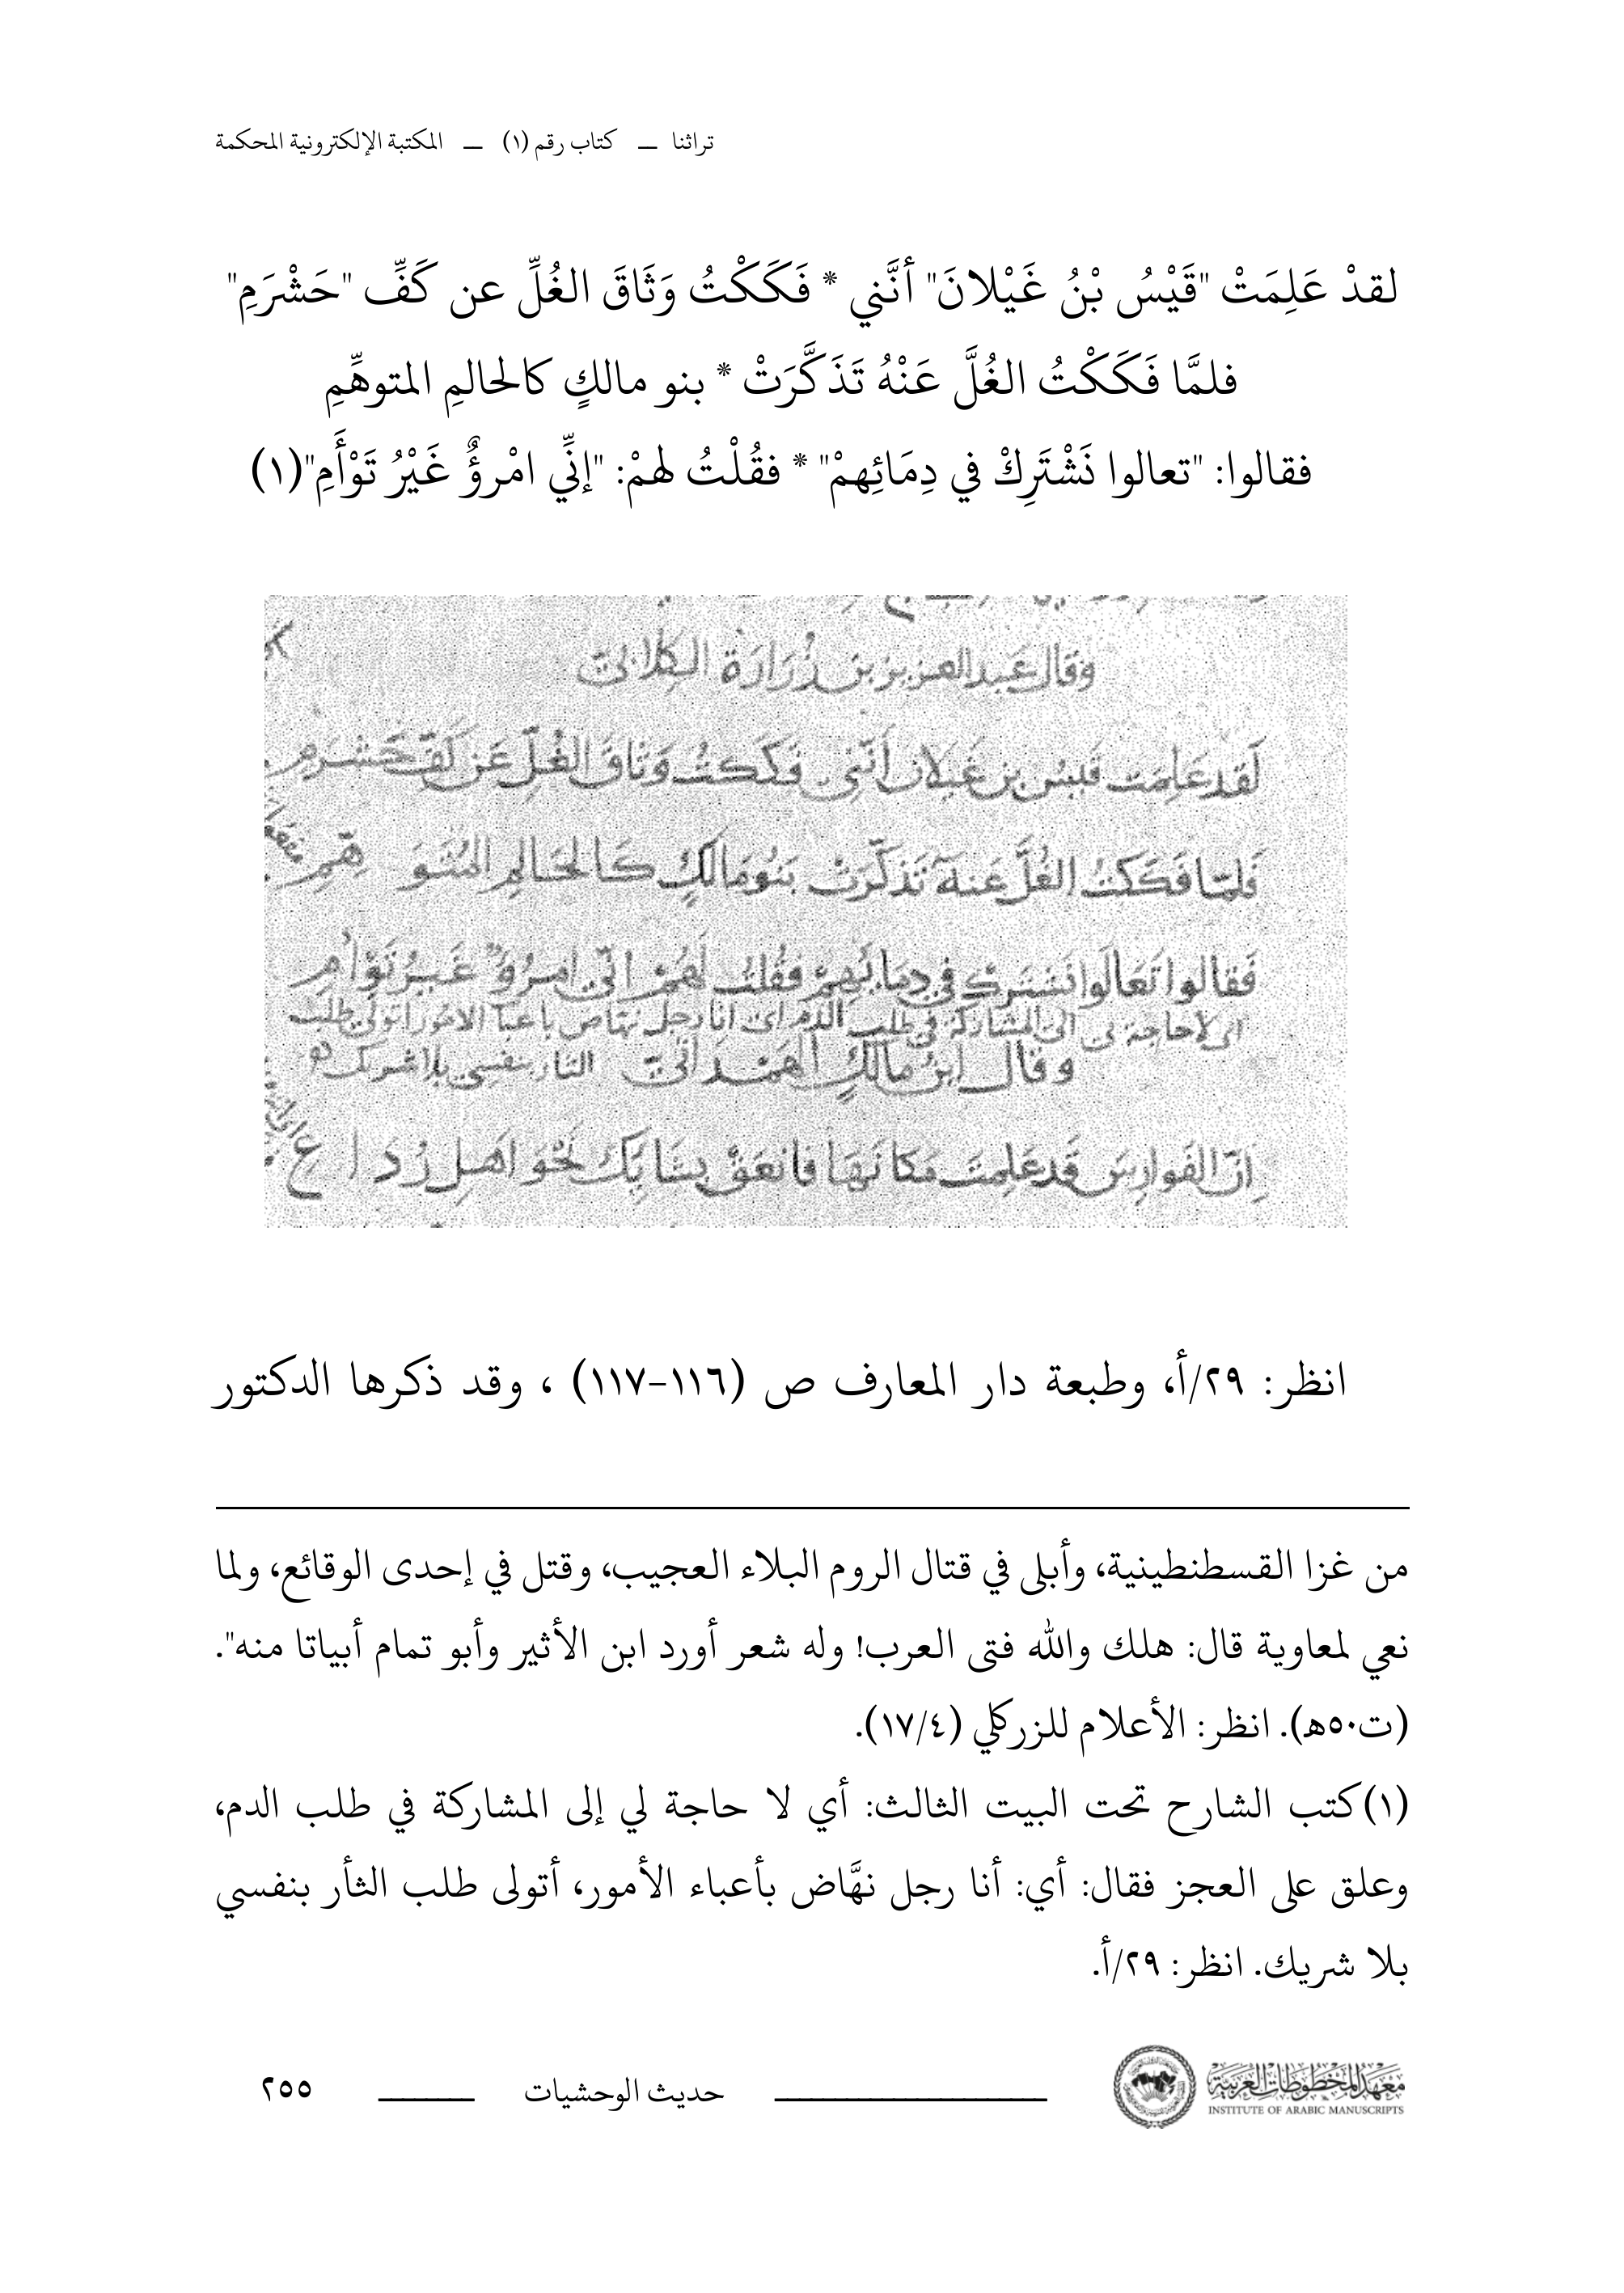 تراثنا ــ كتاب رقم (١) ــ المكتبة الإلكترونية المحكمة
لقدْ عَلِمَتْ "قَيْسُ بْنُ غَيْلانَ" أنَّني * فَكَكْتُ وَثَاقَ الغُلِّ عن كَفِّ "حَشْرَمِ"
فلمَّا فَكَكْتُ الغُلَّ عَنْهُ تَذَكَّرَتْ * بنو مالكٍ كالحالمِ المتوهِّمِ
فقالوا: "تعالوا نَشْتَرِكْ في دِمَائِهمْ" * فقُلْتُ لهمْ: "إنِّي امْرؤٌ غَيْرُ تَوْأَمِ"(١)
وقال عَبد العزيز بن زُرَارَة الكِلَابيّ
لَقد عَلِمَت قَيسُ بن غَيلان أنّني فَكَكتُ وَثَاقَ الغُلِّ عَن كَفّ حَشرَمِ
فَلمّا فَكَكتُ الغُلَّ عَنهُ تَذكّرَتْ بَنُو مَالكٍ كَالحَالِمِ المُتَوَهِّمِ
فَقالوا تَعَالَوا نَشتَرِكْ في دِمَائِهِمْ فَقُلتُ لَهُمْ انّي امرُؤٌ غَيرُ تَوْأَمِ
اى لاحاجة لى الى المشاركة في طلب الدم اى انا رجل نهّاض باعبآ الامور اتولى طلب
وقال ابنُ مالكٍ الهَمْداني الثار بنفسى بلا شريك
اِنّ الفَوارِسَ قَد عَلِمتَ مَكانَهَا فانعَقْ بِشَائِكَ نَحْوَ اهلِ رُدَاعِ
انظر: ٢٩/أ، وطبعة دار المعارف ص (١١٦-١١٧) ، وقد ذكرها الدكتور
من غزا القسطنطينية، وأبلى في قتال الروم البلاء العجيب، وقتل في إحدى الوقائع، ولما
نعي لمعاوية قال: هلك والله فتى العرب! وله شعر أورد ابن الأثير وأبو تمام أبياتا منه".
(ت٥٠هـ). انظر: الأعلام للزركلي (١٧/٤).
(١)كتب الشارح تحت البيت الثالث: أي لا حاجة لي إلى المشاركة في طلب الدم،
وعلق على العجز فقال: أي: أنا رجل نهَّاض بأعباء الأمور، أتولى طلب الثأر بنفسي
بلا شريك. انظر: ٢٩/أ.
معهد المخطوطات العربية
INSTITUTE OF ARABIC MANUSCRIPTS
حديث الوحشيات
٢٥٥